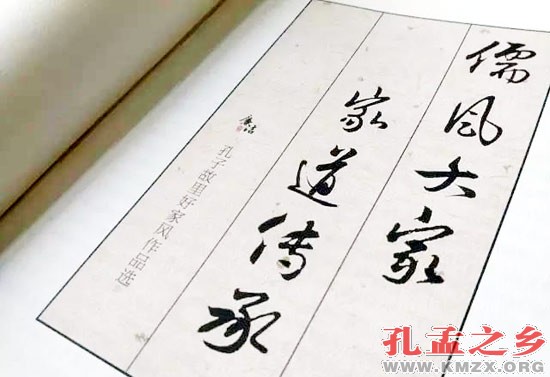 儒风大家
家道传承
孔子故里好家风作品选
孔孟之乡
WWW.KMZX.ORG